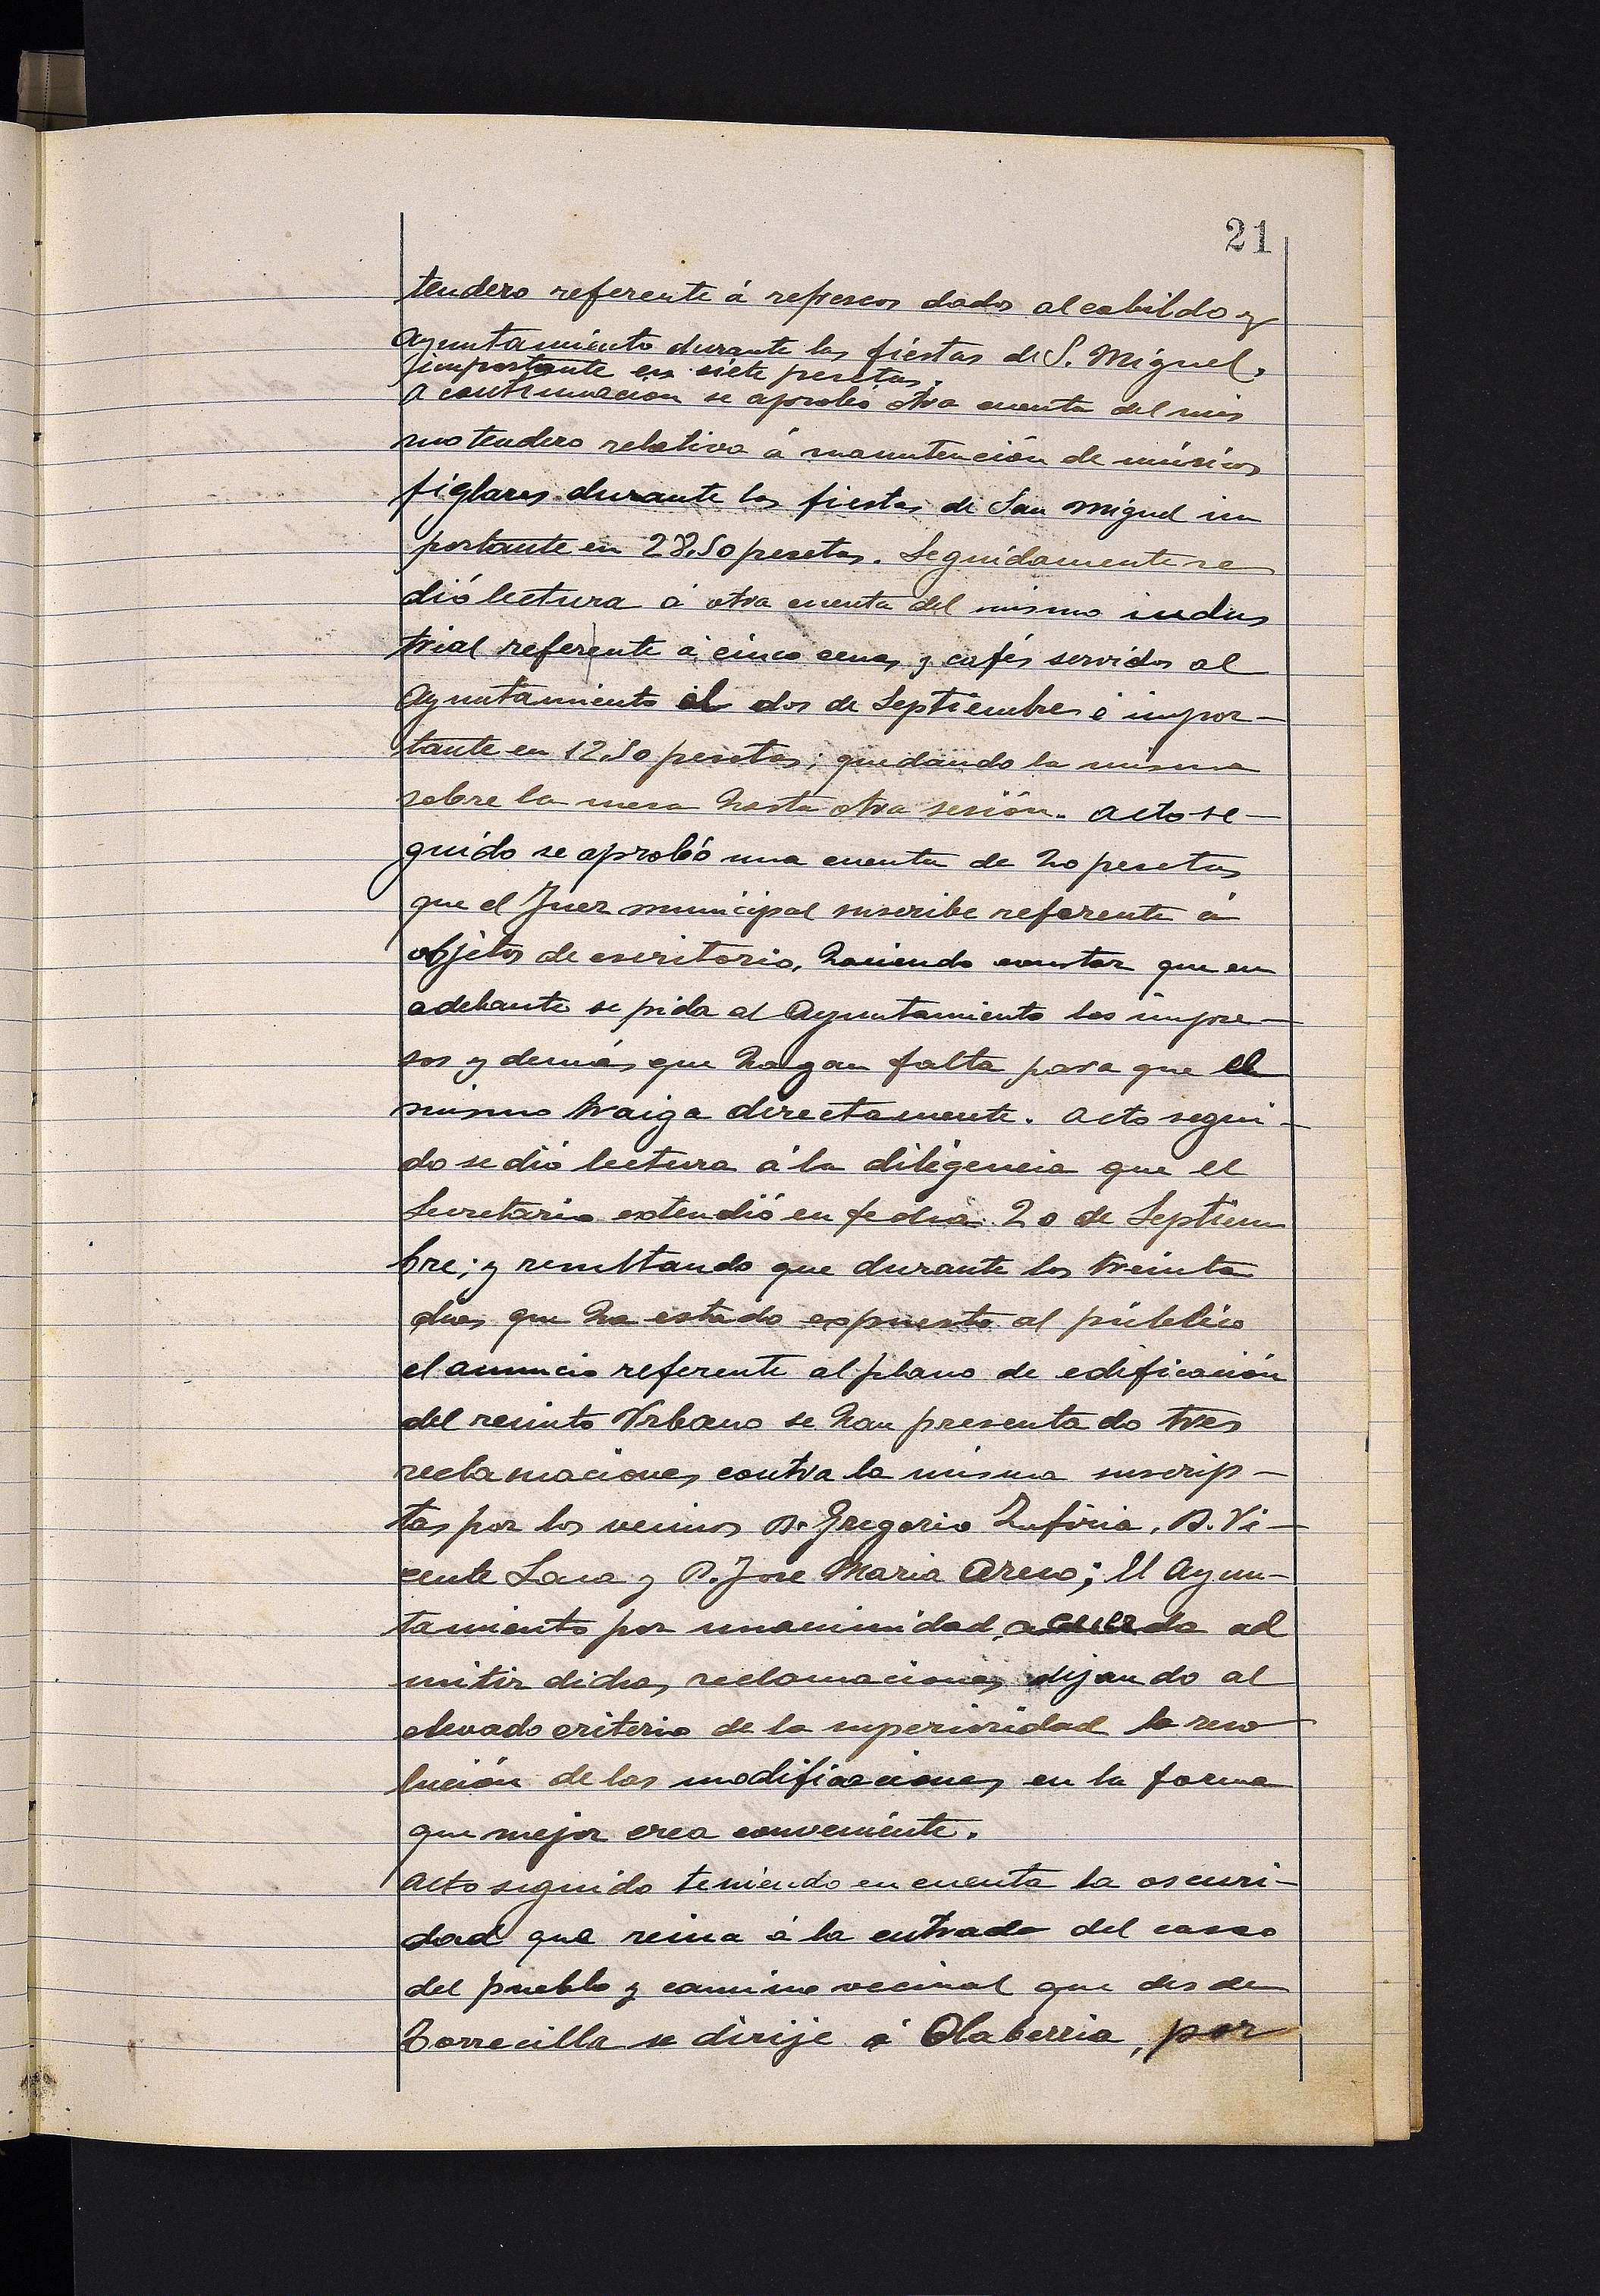 21
tendero referente á refrescos dados al cabildo y
Ayuntamiento durante las fiestas de S. Miguel.
importante en siete pesetas.
A continuación se aprobó otra cuenta del mis
mo tendero relativa á manutención de músicos
figlares durante las fiestas de San Miguel im
portante en 28,50 pesetas. Seguidamente se
dió lectura á otra cuenta del mismo indus
trial referente á cinco cenas y cafés servidos al
Ayuntamiento el dos de Septiembre é impor-
tante en 12,50 pesetas; quedando la misma
sobre la mesa hasta otra sesión. Acto se-
guido se aprobó una cuenta de 20 pesetas
que el Juez municipal suscribe referente á
objetos de escritorio, haciendo constar que en
adelante se pida al Ayuntamiento los impre-
sos y demás que hagan falta para que el
mismo traiga directamente. Acto segui-
do se dió lectura á la diligencia que el
Secretario extendió en fecha 20 de Septiem
bre; y resultando que durante los treinta
dias que ha estado expuesto al público
el anuncio referente al plano de edificación
del recinto Urbano se han presentado tres
reclamaciones contra la misma suscrip-
tas por los vecinos D. Gregorio Zufiria, D. Vi-
cente Lasa y D. Jose Maria Areso; El Ayun-
tamiento por unanimidad acuerda ad
mitir dichas reclamaciones dejando al
elevado criterio de la superioridad la reso
lución de las modificaciones en la forma
que mejor crea conveniente.
Acto seguido teniendo en cuenta la oscuri-
dad que reina á la entrada del casco
del pueblo y camino vecinal que desde
Torrecilla se dirije á Olaberria, por